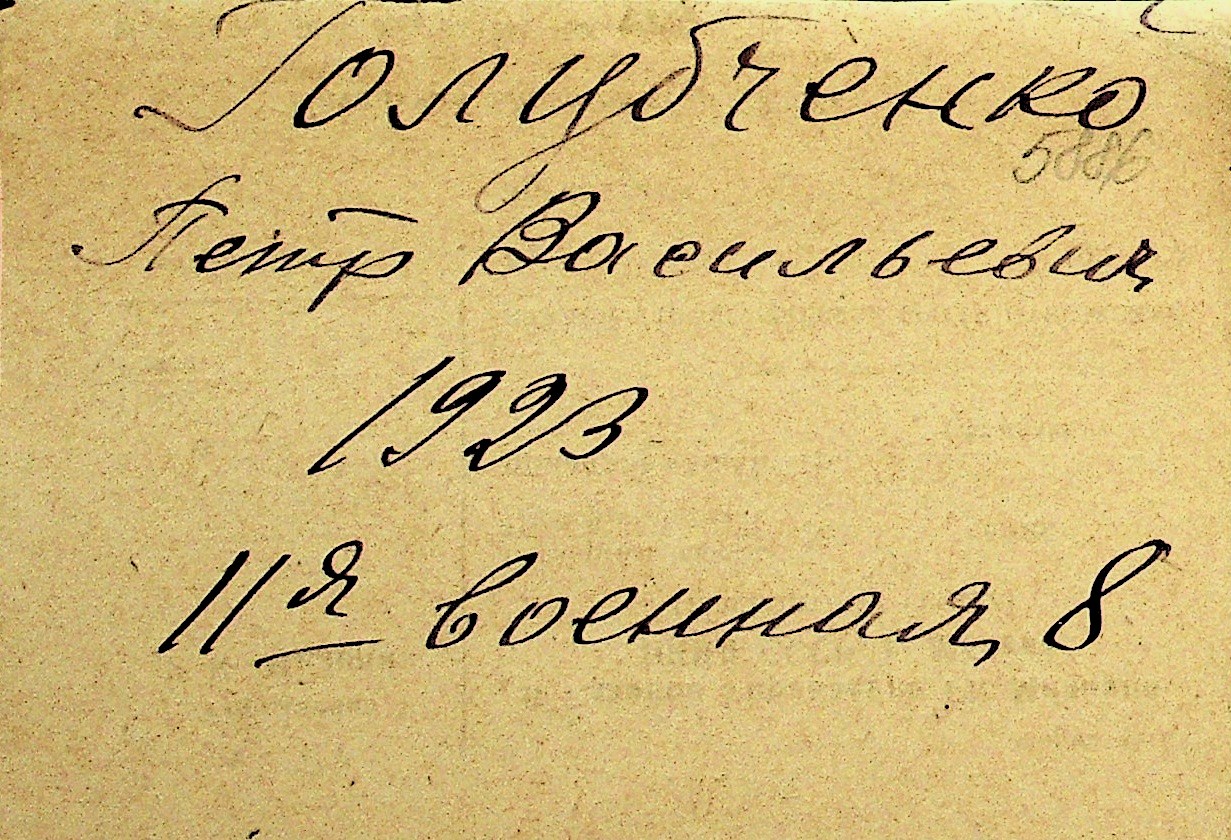 Голубченко
5886
Петр Васильевич
1923
11я военная, 8